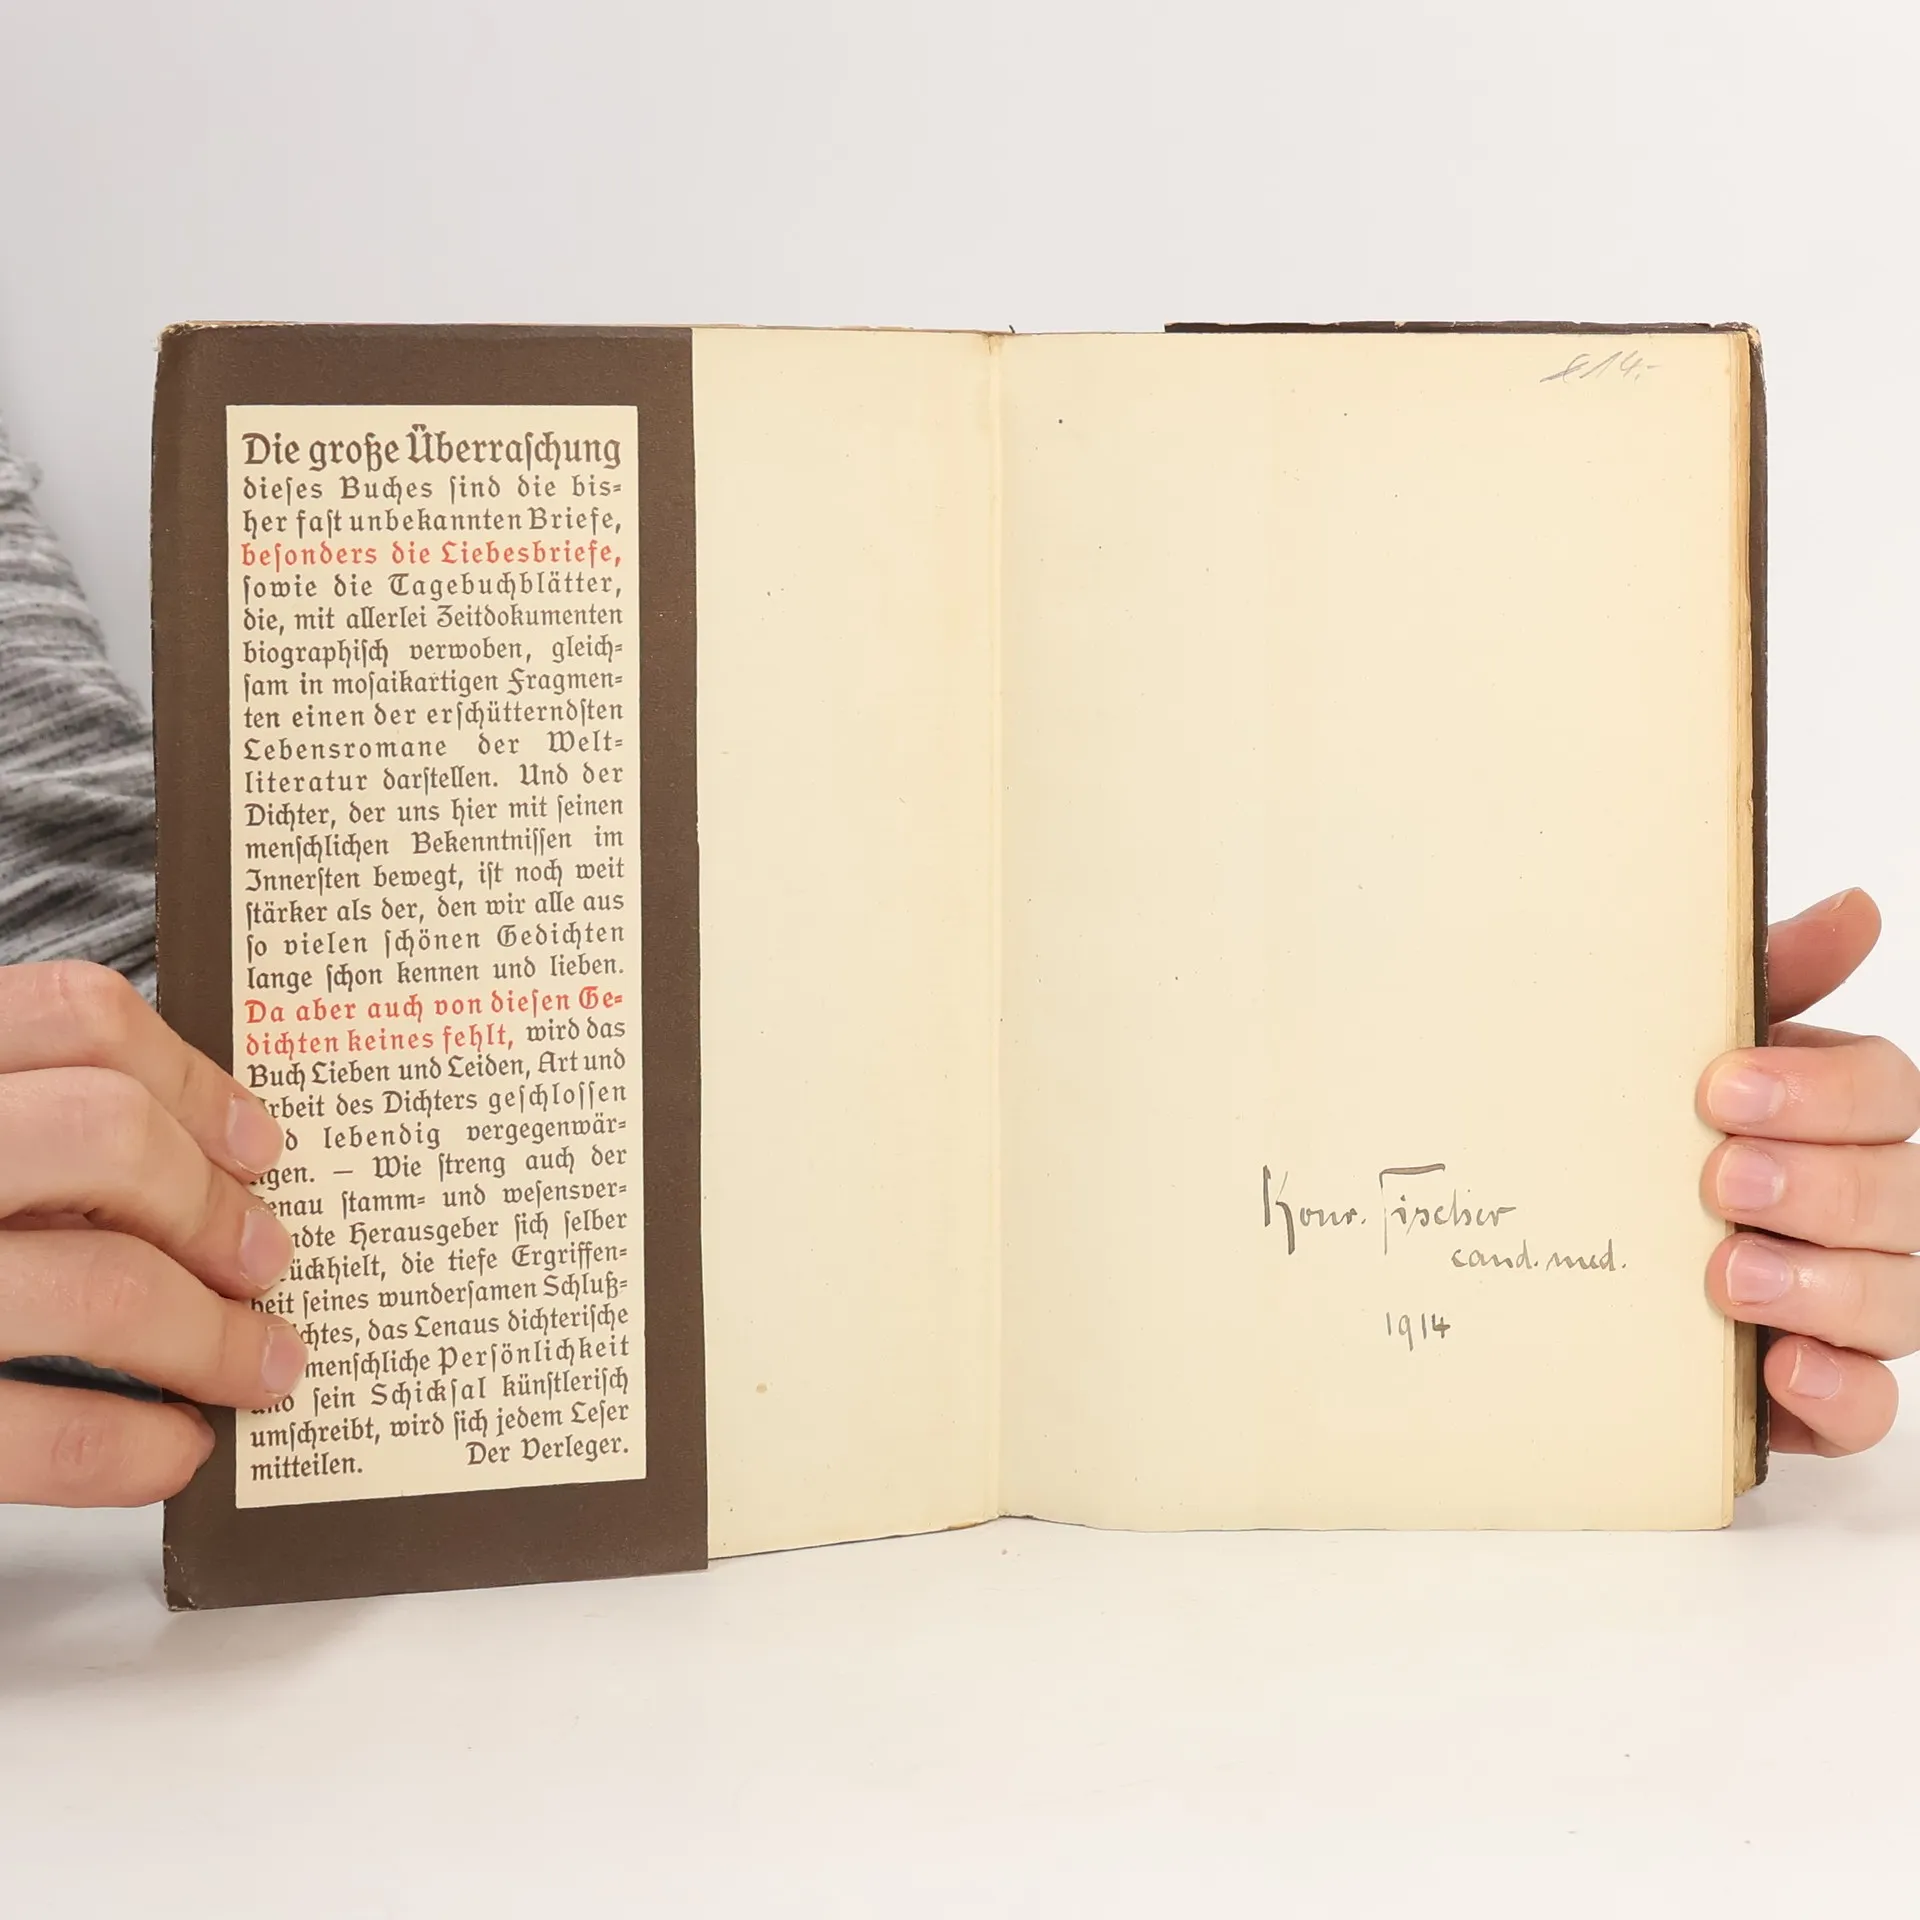 Die große Überraſchung
dieſes Buches ſind die bis⸗
her faſt unbekannten Briefe,
beſonders die Liebesbriefe,
ſowie die Tagebuchblätter,
die, mit allerlei Zeitdokumenten
biographiſch verwoben, gleich⸗
ſam in moſaikartigen Fragmen⸗
ten einen der erſchütterndſten
Lebensromane der Welt⸗
literatur darſtellen. Und der
Dichter, der uns hier mit ſeinen
menſchlichen Bekenntniſſen im
Innerſten bewegt, iſt noch weit
ſtärker als der, den wir alle aus
ſo vielen ſchönen Gedichten
lange ſchon kennen und lieben.
Da aber auch von dieſen Ge⸗
dichten keines fehlt, wird das
Buch Lieben und Leiden, Art und
rbeit des Dichters geſchloſſen
d lebendig vergegenwär⸗
gen. — Wie ſtreng auch der
enau ſtamm⸗ und weſensver⸗
ndte Herausgeber ſich ſelber
ückhielt, die tiefe Ergriffen⸗
heit ſeines wunderſamen Schluß⸗
chtes, das Lenaus dichteriſche
menſchliche Perſönlichkeit
und ſein Schickſal künſtleriſch
umſchreibt, wird ſich jedem Leſer
mitteilen. Der Verleger.
14.-
Konr. Fischer
cand. med.
1914